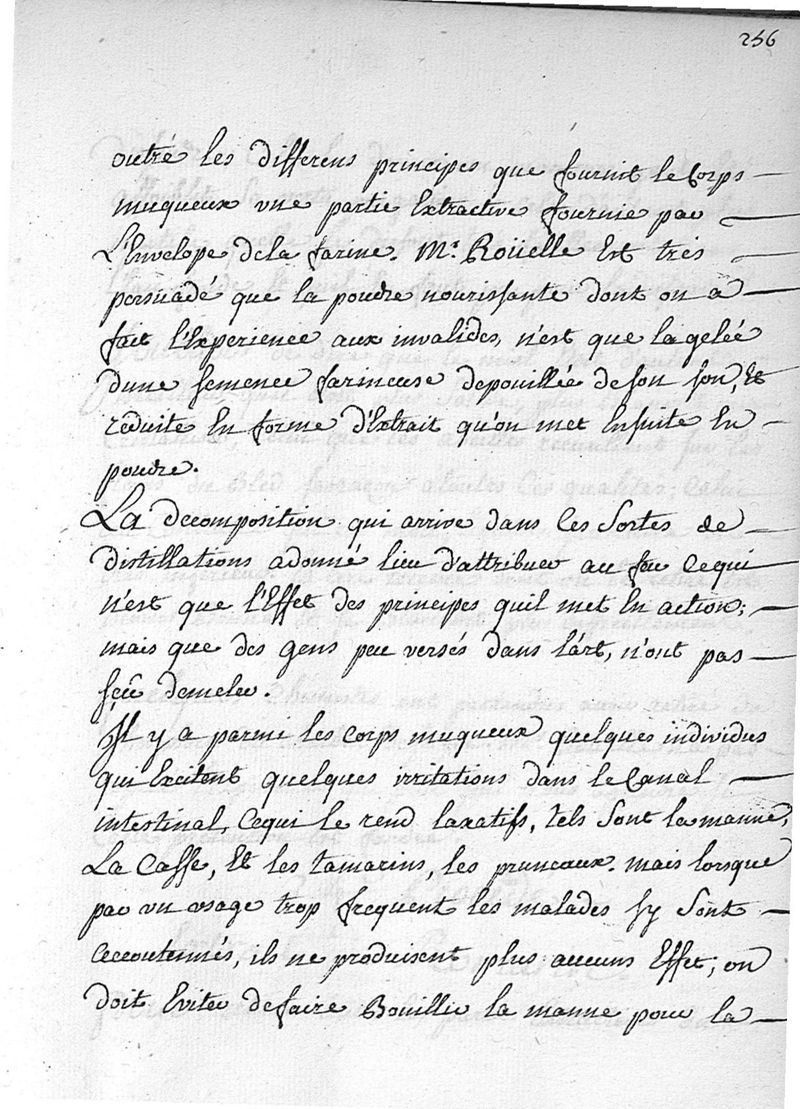 256
outré les differens principes que fournit le Corps
muqueux vne partie Extractive fournie par
L'Envelope dela farine. Mr. Roüelle Est trés
persuadé que la poudre nourissante dont on a
fait l'Experience aux invalides, n'est que la gelée
dune semence farineuse depouillée de son son, Et
réduite En forme d'Extrait qu'on met Ensuite En
poudre.
La decomposition qui arrive dans les Sortes de
distillations adonné lieu d'attribuer au feu cequi
n'est que l'Effet des principes quil met En action;
mais que des gens peu versés dans l'árt, n'ont pas
sçû demeler.
Il y a parmi les corps muqueux quelques individus
qui Excitent quelques irritations dans le Canal
intestinal, cequi le rend laxatifs, tels Sont la manne,
La Casse, Et les tamarins, les pruneaux. mais lorsque
par vn vsage trop frequent les malades sy Sont
accoutumés, ils ne produisent plus aucuns Effet; on
doit Eviter defaire Bouillir la manne pour la